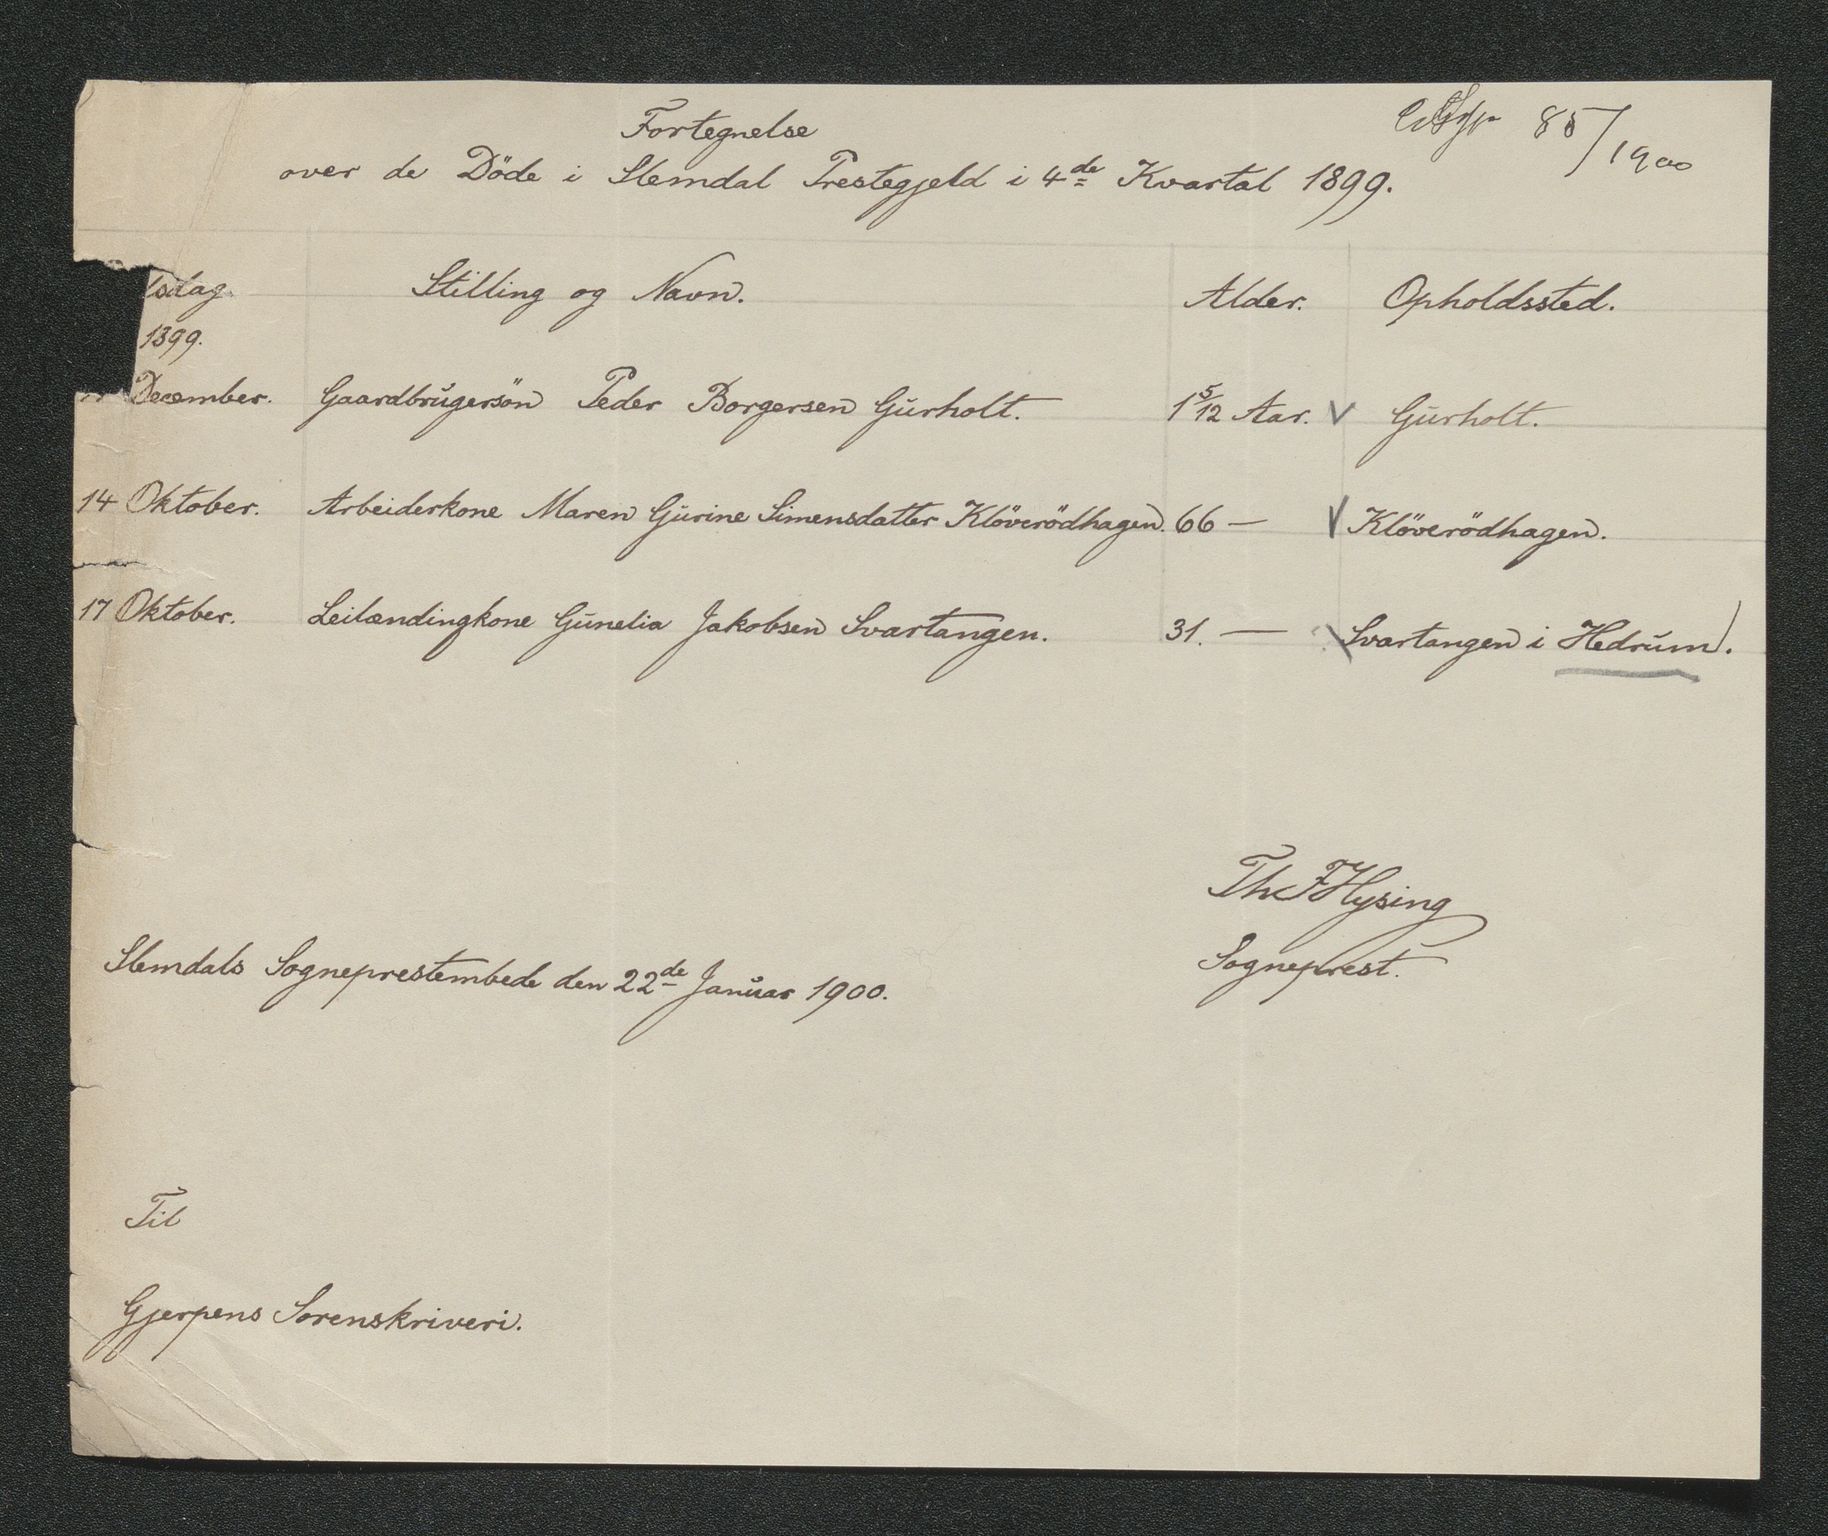 Fortegnelse
85/1900
over de Döde i Slemdal Prestegjeld i 4de Kvartal 1899.
lsdag Stilling og Navn. Alder. Opholdssted.
1899.
December. Gaardbrugersön Peder Borgersen Gurholt. 1 5/12 Aar. V Gurholt.
14 Oktober. Arbeiderkone Maren Gurine Simensdatter Klöverödhagen. 66 — V Klöverödhagen.
17 Oktober. Leilændingkone Gunelia Jakobsen Svartangen. 31. — Svartangen i Hedrum.
Th. F Hysing
Sogneprest.
Slemdals Sogneprestembede den 22de Januar 1900.
Til
Gjerpens Sorenskriveri.